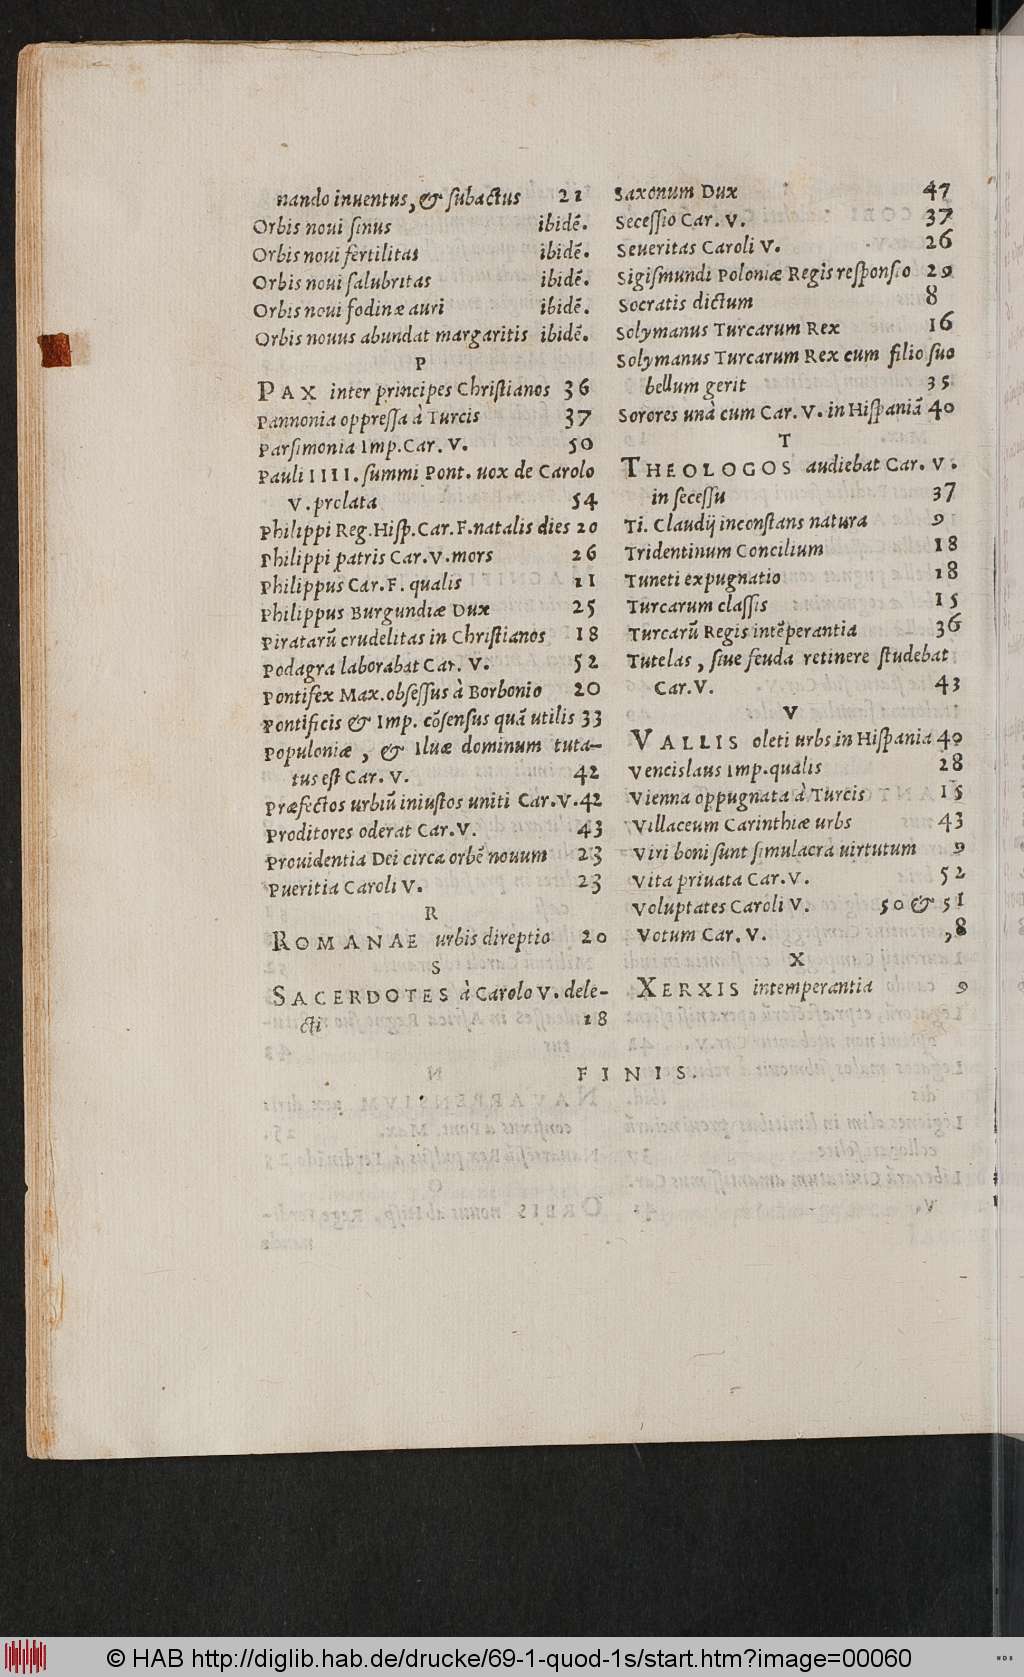 nando inuentus, & ſubactus 21
Orbis noui ſinus ibidẽ.
Orbis noui fertilitas ibidẽ.
Orbis noui ſalubritas ibidẽ.
Orbis noui fodinæ auri ibidẽ.
Orbis nouus abundat margaritis ibidẽ.
P
PAX inter principes Chriſtianos 36
Pannonia oppreſſa à Turcis 37
Parſimonia Imp. Car. V. 50
Pauli IIII. ſummi Pont. uox de Carolo
V. prolata 54
Philippi Reg. Hiſp. Car. F. natalis dies 20
Philippi patris Car. V. mors 26
Philippus Car. F. qualis 11
Philippus Burgundiæ Dux 25
Piratarũ crudelitas in Chriſtianos 18
Podagra laborabat Car. V. 52
Pontifex Max. obſeſſus à Borbonio 20
Pontificis & Imp. cõſenſus quã utilis 33
Populoniæ, & Iluæ dominum tuta-
tus eſt Car. V. 42
Præfectos urbiũ iniuſtos uniti Car. V. 42
Proditores oderat Car. V. 43
Prouidentia Dei circa orbẽ nouum 23
Pueritia Caroli V. 23
R
ROMANAE urbis direptio 20
S
SACERDOTES à Carolo V. dele-
cti 18
Saxonum Dux 47
Seceſſio Car. V. 37
Seueritas Caroli V. 26
Sigiſmundi Poloniæ Regis reſponſio 29
Socratis dictum 8
Solymanus Turcarum Rex 16
Solymanus Turcarum Rex cum filio ſuo
bellum gerit 35
Sorores unà cum Car. V. in Hiſpaniã 40
T
THEOLOGOS audiebat Car. V.
in ſeceſſu 37
Ti. Claudij inconſtans natura 9
Tridentinum Concilium 18
Tuneti expugnatio 18
Turcarum claſſis 15
Turcarũ Regis intẽperantia 36
Tutelas, ſiue feuda retinere ſtudebat
Car. V. 43
V
VALLIS oleti urbs in Hiſpania 40
Vencislaus Imp. qualis 28
Vienna oppugnata à Turcis 15
Villaceum Carinthiæ urbs 43
Viri boni ſunt ſimulacra uirtutum 9
Vita priuata Car. V. 52
Voluptates Caroli V. 50 & 51
Votum Car. V. ,8
X
XERXIS intemperantia 9
FINIS.
© HAB http://diglib.hab.de/drucke/69-1-quod-1s/start.htm?image=00060